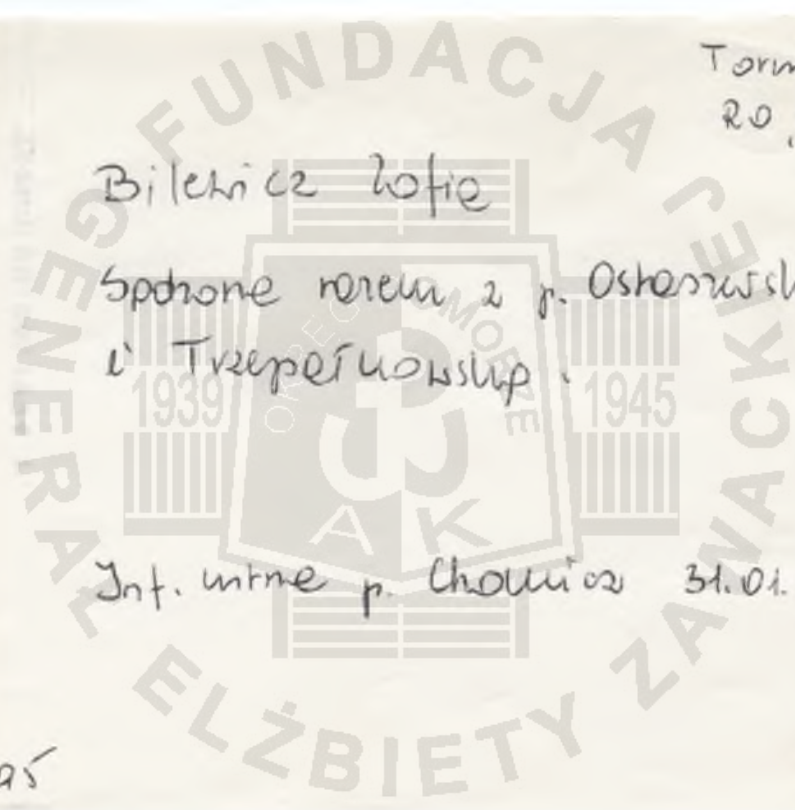 Toru
20.
Bilewicz Zofia
Spalona razem z p. Ostaszewsk
i Trzepałkowską.
Inf. ustne p. Chomicz 31.01.
as
FUNDACJA
GENERAŁ ELŻBIETY ZAWACKIEJ
OKRĘG POMORZE
1939
1945
AK